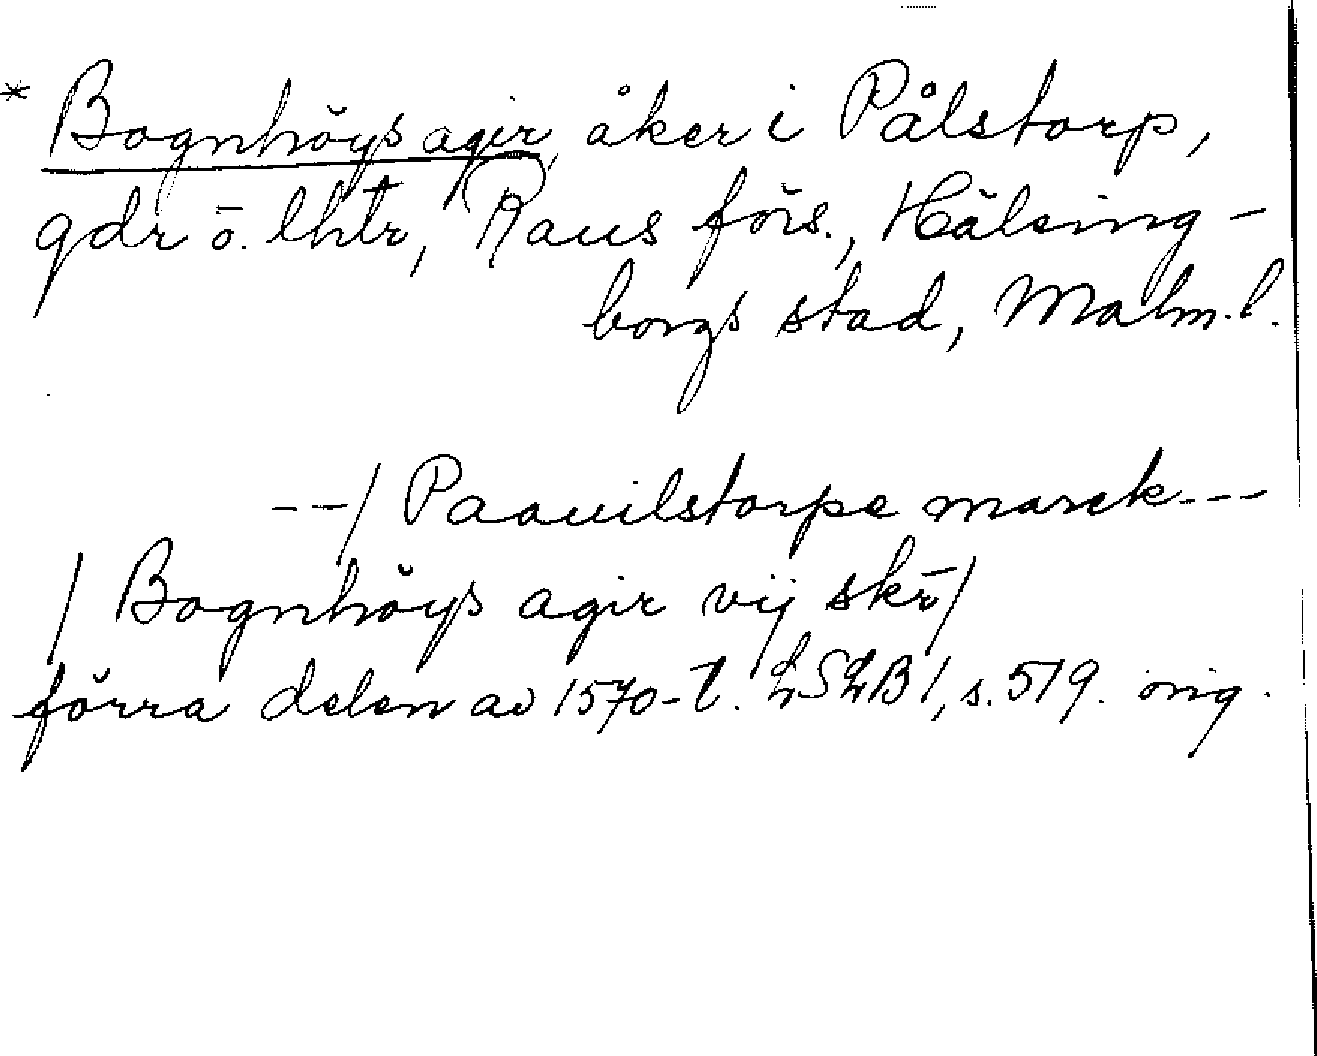 * Bognhöys agir, åker i Pålstorp,
gdr o. lhtr, Raus förs., Hälsing-
borgs stad, Malm. l.
---/ Paauilstorpe marck---
/ Bognhöys agir vij skr/
förra delen av 1570-t. LSLB 1, s. 519. orig.